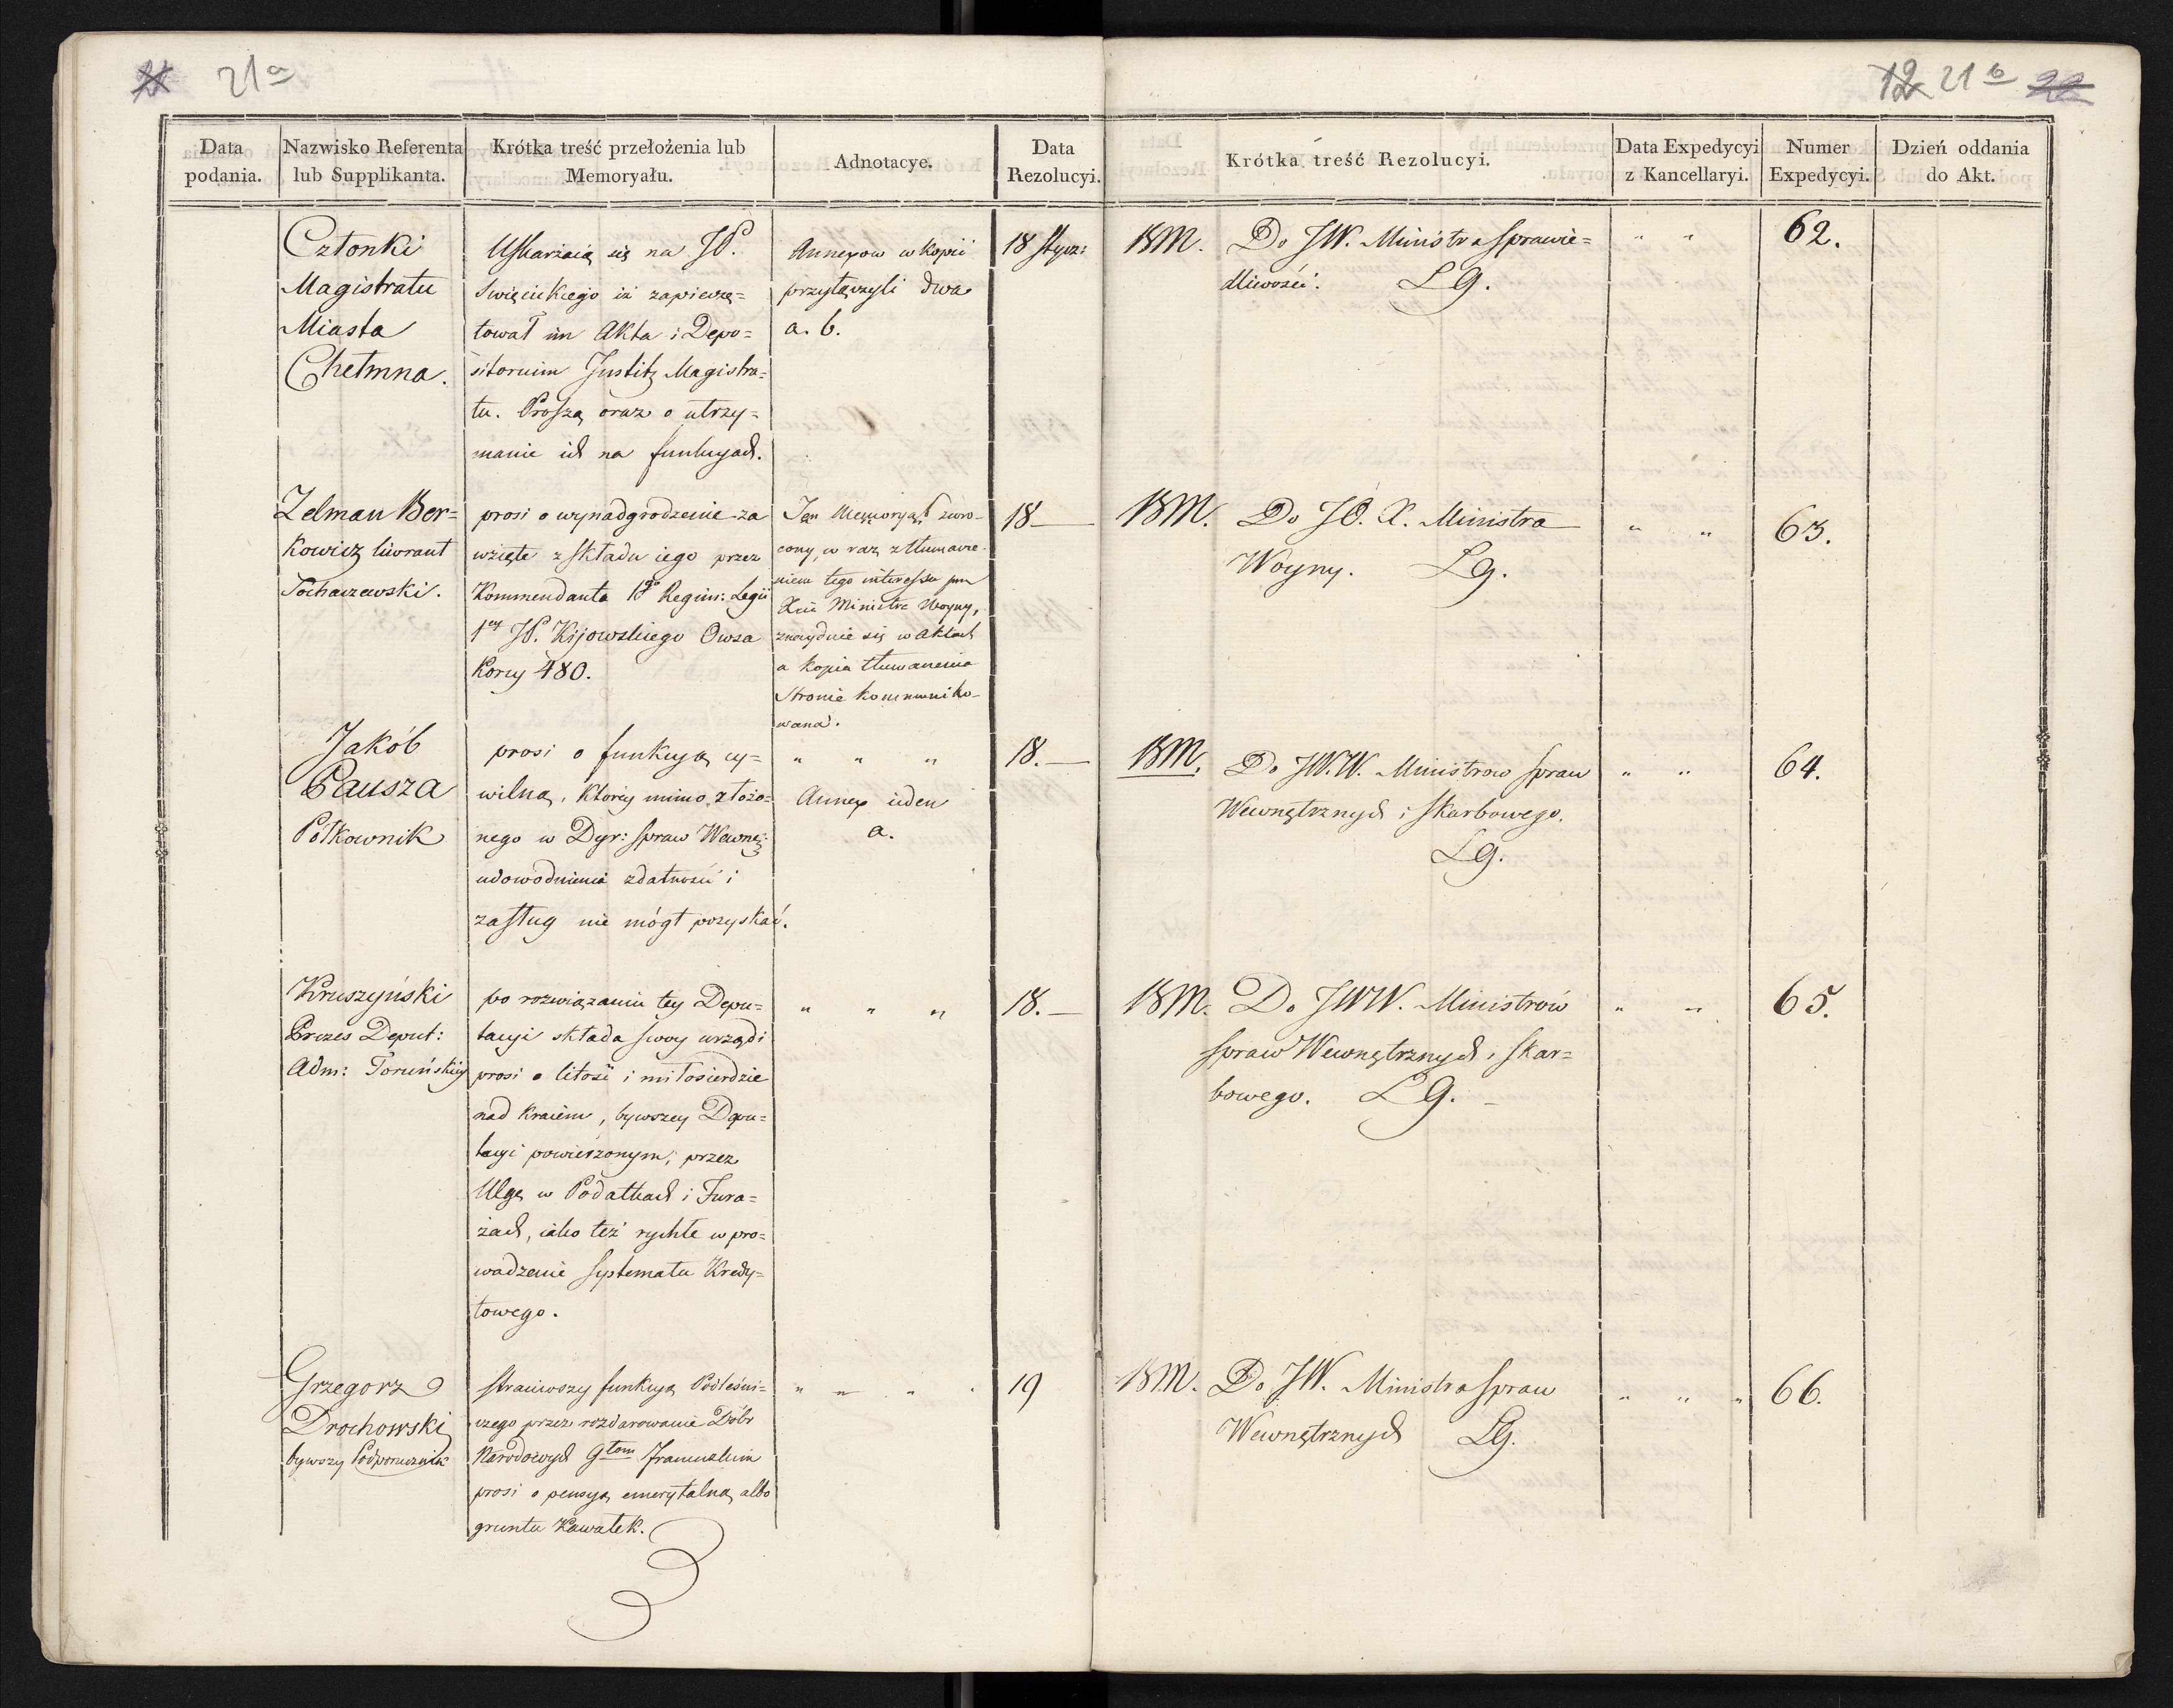 21 a
12 21 b 22
Data podania.
Nazwisko Referenta lub Supplikanta.
Krótka treść przełożenia lub Memoryału.
Adnotacye.
Data Rezolucyi.
Krótka treść Rezolucyi.
Data Expedycyi z Kancellaryi.
Numer Expedycyi.
Dzień oddania do Akt.
Członki
Magistratu
Miasta
Chełmna.
Uskarżaią się na JP.
Swięcickiego iż zapieczę=
tował im Akta i Depo=
sitorium Justitz Magistra=
tu. Proszą oraz o utrzy=
manie ich na funkcyach.
Annexow w kopii
przyłączyli dwa
a. b.
18 Stycz:
BM.
Do JW. Ministra Sprawie=
dliwości. LG.
" "
62.
Zelman Ber=
kowicz liwrant
Sochaczewski.
prosi o wynadgrodzenie za
wzięte z składu iego przez
Kommendanta 1go Regim: Legii
1ey JP. Kijowskiego Owsa
Korcy 480.
Ten Memoryał zwro-
cony, w raz z tłumacze-
niem tego interessu
Xcia Ministra Woyny,
znayduie się w Aktach
a kopia tłumaczenia
Stronie kommuniko-
wana.
18 —
BM.
Do JO. X. Ministra
Woyny. LG.
" "
63.
Jakób
Pausza
Połkownik
prosi o funkcyą cy=
wilną, ktorey mimo złożo=
nego w Dyr: Spraw Wewnę:
udowodnienia zdatności i
zasług nie mógł pozyskać.
" " "
Annex ieden
a.
18. —
BM.
Do JW.W. Ministrow Spraw
Wewnętrznych i Skarbowego.
LG.
" "
64.
Kruszyński
Prezes Deput:
Adm: Toruńskiey
po rozwiązaniu tey Depu=
tacyi składa swoy urząd i
prosi o litość i miłosierdzie
nad kraiem, bywszey Depu=
tacyi powierzonym, przez
Ulgę w Podatkach i Fura=
żach, iako też rychłe wpro=
wadzenie Systematu Kredy=
towego.
" " "
18. —
BM.
Do JWW. Ministrów
Spraw Wewnętrznych i Skar=
bowego. LG. —
" "
65.
Grzegorz
Drochowski
bywszy Podporucznik
straciwszy funkcyą Podleśni=
czego przez rozdarowanie Dóbr
Narodowych Gtom Francuzkim
prosi o pensyą emerytalną albo
gruntu kawałek.
" " " "
19
BM.
Do JW. Ministra Spraw
Wewnętrznych LG.
" " "
66.